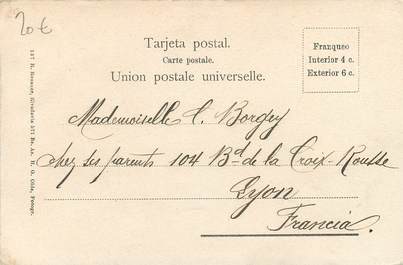 20 €
Tarjeta postal.
Carte postale.
Union postale universelle.
Franqueo
Interior 4 c.
Exterior 6 c.
Mademoiselle C. Borgey
chez ses parents 104 Bd de la Croix-Rousse
Lyon
Francia.
137 R. Rosauer, Rivadavia 571 Bs. As.